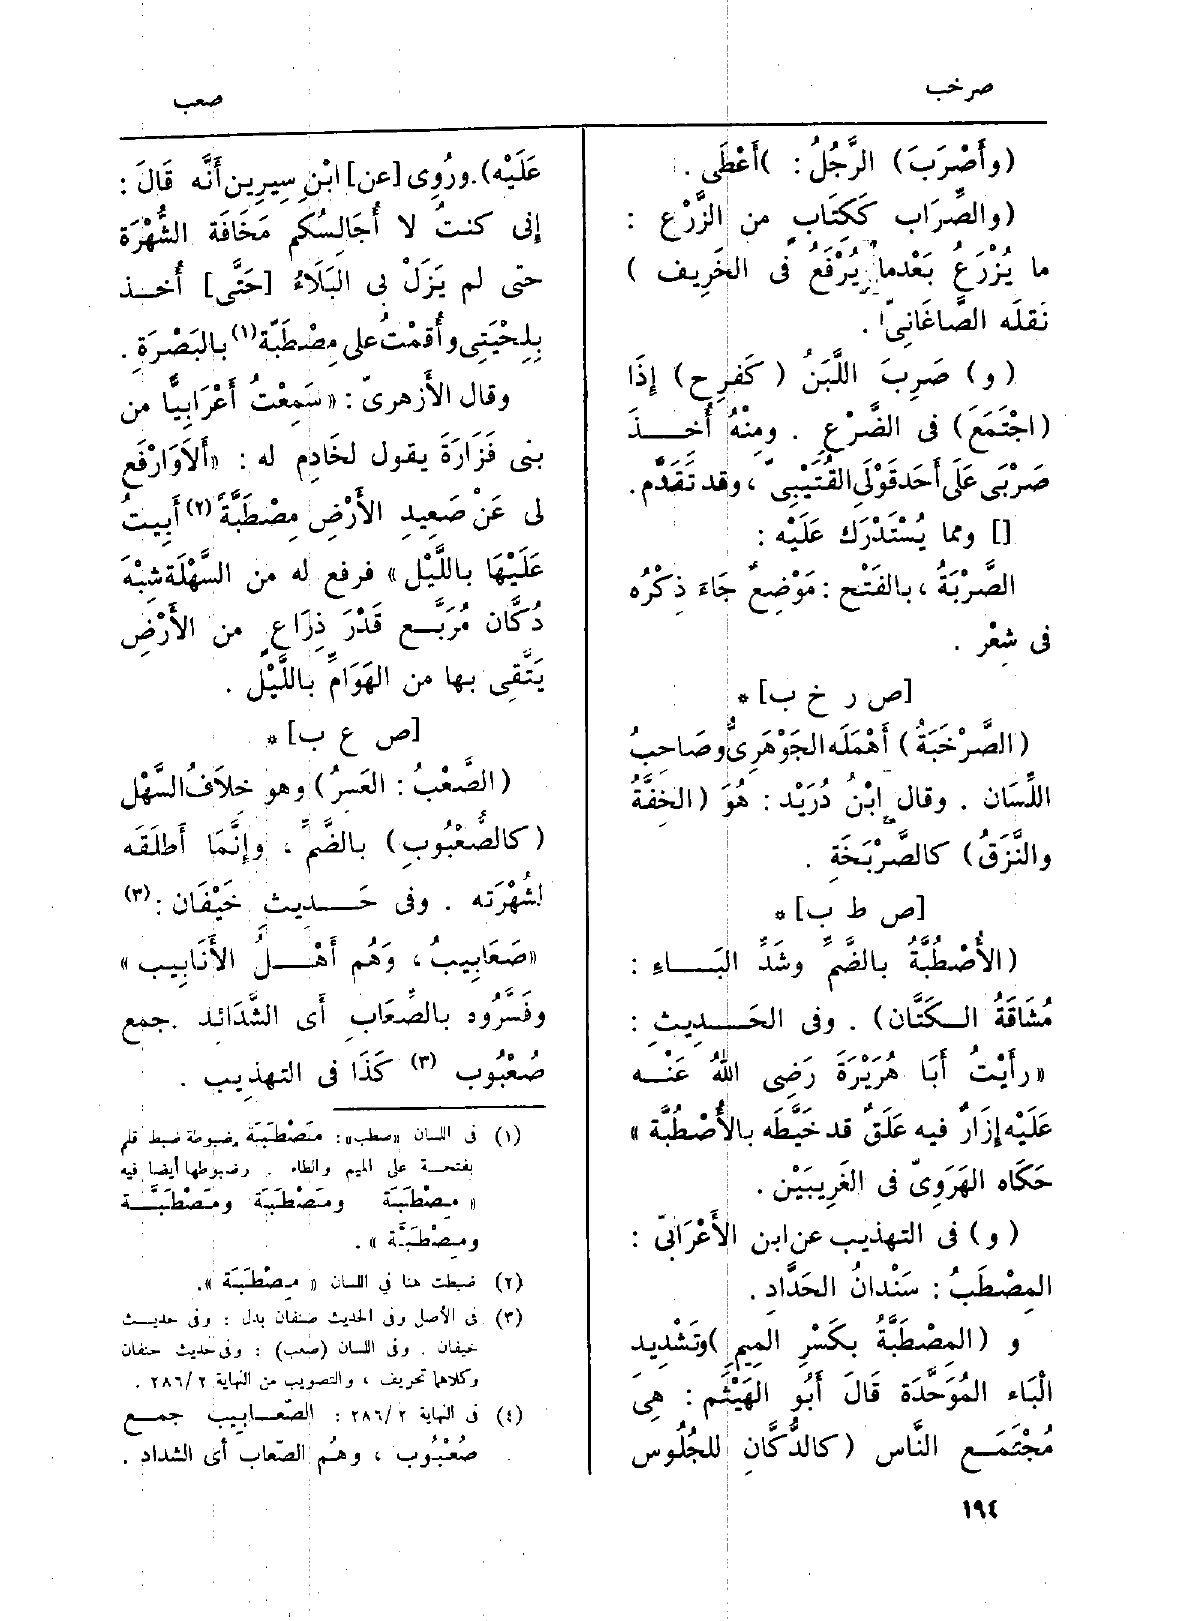 صرخب
صعب
(وأَصْرَبَ) الرَّجُلُ : )أَعْطَى .
(والصِّرَاب كَكِتَابٍ من الزَّرْع :
ما يُزْرَعُ بَعْدما يُرْفَعُ فى الخَرِيف )
نَقلَه الصَّاغَانِىّ .
( و ) صَرِبَ اللَّبَنُ ( كَفرِح ) إِذَا
(اجْتَمَعَ) فى الضَّرْعِ . ومِنْهُ أُخِــذَ
صَرْبَى عَلَى أَحَد قَوْلَىِ القُتَيْبِىّ ، وقد تَقَدَّم.
[] ومما يُسْتَدْرَك عَلَيْه :
الصَّرْبَةُ ، بالفَتْح : مَوْضِعٌ جَاءَ ذِكْرُه
فى شِعْر .
[ص ر خ ب] *
(الصَّرْخَبَةُ ) أَهْمَلَه الجَوْهَرِىُّ وصَاحِبُ
اللِّسَان . وقال ابْنُ دُرَيْد : هُوَ (الخِفَّةُ
والنَّزَقُ) كالصَّرْبَخَةِ .
[ص ط ب] *
(الأُصْطُبَّةُ بالضَّمِّ وشَدِّ البَــاءِ :
مُشَاقَةُ الــكَتَّان) . وفى الحَــدِيثِ :
« رأَيْتُ أَبَا هُرَيْرَةَ رَضِى اللهُ عَنْــه
عَلَيْه إِزَارٌ فيه عَلَقٌ قد خَيَّطَه بالأُصْطُبَّة »
حَكَاه الهَرَوِىّ فى الغَرِيبَيْن .
( و ) فى التهذيب عن ابن الأَعْرَابىّ :
المِصْطَبُ : سَنْدانُ الحَدَّادِ .
و (المِصْطَبَّةُ بكَسْرِ المِيمِ )وتَشْدِيد
الْبَاء المُوَحَّدَة قَالَ أَبُو الهَيْثَم : هِىَ
مُجْتَمَــع النَّاس (كالدُّكَّانِ للجُلُوس
عَلَيْه) .ورُوِى [عن] ابْنِ سِيرِين أَنَّه قَالَ :
إِنى كنتُ لا أُجَالِسُكم مَخَافَة الشُّهْرَة
حتى لم يَزَلْ بى البَلَاءُ [حَتَّى] أُخــذ
بِلِحْيَتِى وأُقمْتُ على مِصْطَبَّة(١) بالبَصْرَةِ .
وقال الأَزهرىّ : « سَمِعْتُ أَعْرَابِيًّا من
بنى فَزَارَةَ يقول لخَادِم له : «أَلَا وَارْفَع
لى عَنْ صَعِيدِ الأَرْضِ مِصْطَبَّةً(٢) أَبِيتُ
عَلَيْهَا باللَّيْل» فرفع له من السَّهْلَة شِبْهَ
دُكَّان مُرَبَّــع قَدْرَ ذِرَاعٍ من الأَرْضِ
يَتَّقى بها من الهَوَامِّ باللَّيْل .
[ص ع ب] *
(الصَّعْبُ : العَسرُ) وهو خلَافُ السَّهْل
(كالصُّعْبُوبِ) بالضَّمِّ ، وإِنَّمَا أَطلَقَه
لشُهْرَته . وفى حَــدِيثِ خَيْفَان :(٣)
«صَعَابِيبُ ، وَهُم أَهْــلُ الأَنَابِيب»
وفَسَّرُوه بالصِّعَابِ أَى الشَّدَائد .جمع
صُعْبُوب (٣) كَذَا فى التهذِيب .
(١) فى اللسان «صطب»: مَصْطَبَة مضبوطة ضبط قلم
بفتحــة على الميم والطاء . وضبوطها أيضا فيه
« مِصْطَبَة ومَصْطَبَة ومَصْطَبَّــة
ومِصْطَبَّة » .
(٢) ضبطت هنا فى اللسان « مِصْطَبَة ».
(٣) فى الأصل وفى الحديث ضنفان بدل : وفى حديــث
خيفان . وفى اللسان (صعب) : وفى حديث حنفان
وكلاهما تحريف ، والتصويب من النهاية ٢ /٢٨٦ .
(٤) فى النهاية ٢ /٢٨٦ : الصَّعــابيب جمــع
صُعْبُوب ، وهُم الصِّعاب أى الشداد .
١٩٤